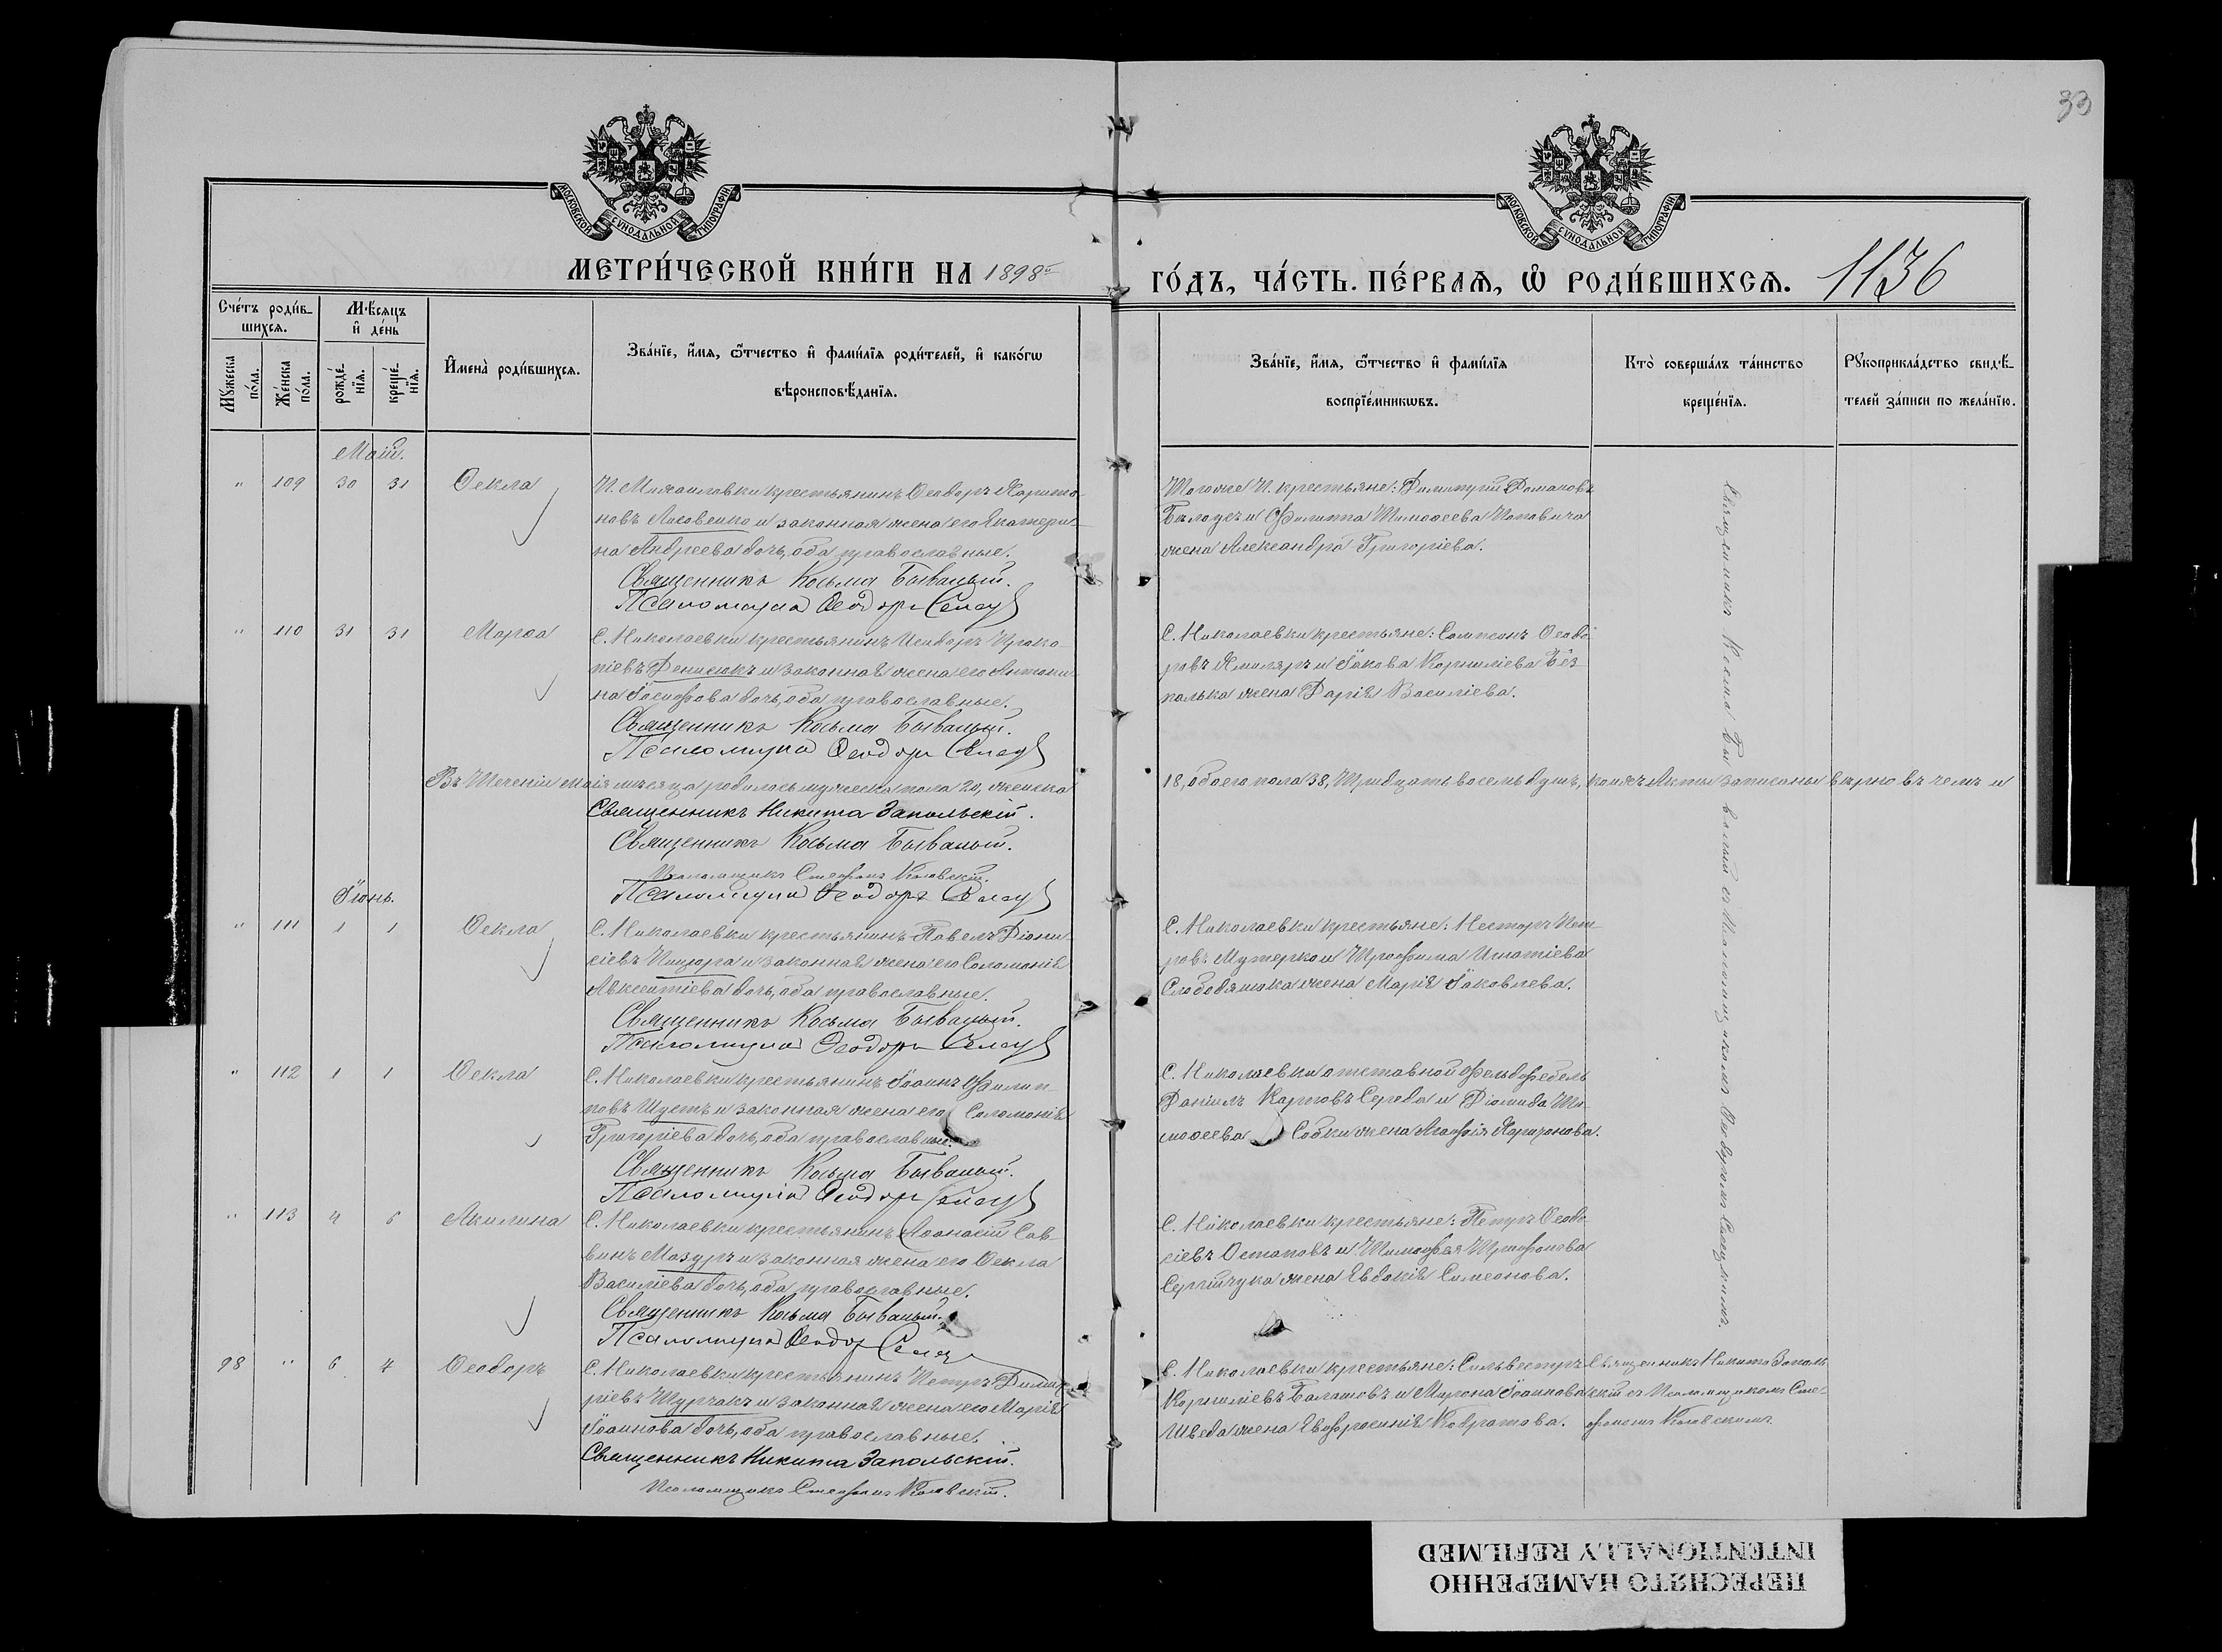 33
МОСКОВСКОЙ СѴНОДАЛЬНОЙ ТИПОГРАФІИ
МОСКОВСКОЙ СѴНОДАЛЬНОЙ ТИПОГРАФІИ
МЕТРИ́ЧЕСКОЙ КНИ́ГИ НА 1898й
ГО́ДЪ, ЧА́СТЬ ПЕ́РВАѦ, Ѡ РОДИ́ВШИХСѦ. 1136
Сче́тъ роди́в-
шихсѧ.
Мꙋ́жеска по́ла.
Же́нска по́ла.
Мѣ́сѧцъ
и҆ де́нь
рожде́нїѧ.
креще́нїѧ.
И҆мена̀ роди́вшихсѧ.
Зва́нїе, и҆́мѧ, ѻ҆́тчество и҆ фами́лїѧ роди́телей, и҆ како́гѡ
вѣроисповѣ́данїѧ.
Зва́нїе, и҆́мѧ, ѻ҆́тчество и҆ фами́лїѧ
воспрїе́мникѡвъ.
Кто̀ соверша́лъ та́инство
креще́нїѧ.
Рꙋкоприкла́дство свидѣ́-
телей за́писи по жела́нїю.
Май.
" 109 30 31 Ѳекла
И. Михаиловки крестьянинъ Ѳеодоръ Харито-
новъ Лисовенко и законная жена его Екатери-
на Андреева дочь, оба православные.
Священникъ Косьма Бывалый.
Псаломщикъ Ѳеодоръ
Тогоже И. крестьяне: Димитрій Романовъ
и Филиппа Тимоѳеева Поповича
жена Александра Григоріева.
Священникъ Косма Бывалый съ Псаломщикомъ Ѳеодоромъ
" 110 31 31 Марѳа
С. Николаевки крестьянинъ Исидоръ Проко-
піевъ Денисюкъ и законная жена его Антони-
на Іосифова дочь, оба православные.
Священникъ Косьма Бывалый.
Псаломщикъ Ѳеодоръ
С. Николаевки крестьяне: Сампсонъ Ѳеодо-
ровъ и Іакова Корниліева Без-
палька жена Дарія Василіева.
Въ теченіи маія мѣсяца родилось мужеска пола 20, женска
18, обоего пола 38, тридцать восемь душъ, коихъ Акты записаны вѣрно въ чемъ и
Священникъ Никита Запольскій.
Священникъ Косьма Бывалый.
Псаломщикъ Стефанъ
Псаломщикъ Ѳеодоръ
Іюнь.
" 111 1 1 Ѳекла
С. Николаевки крестьянинъ Павелъ Діони-
сіевъ и законная жена его Соломонія
Авксентіева дочь, оба православные.
Священникъ Косьма Бывалый.
Псаломщикъ Ѳеодоръ
С. Николаевки крестьяне: Несторъ Пет-
ровъ и Трофима Игнатіева
Слободянюка жена Марія Іаковлева.
" 112 1 1 Ѳекла
С. Николаевки крестьянинъ Іоаннъ Филип-
повъ Шустъ и законная жена его Соломонія
Григоріева дочь, оба православные.
Священникъ Косьма Бывалый.
Псаломщикъ Ѳеодоръ
С. Николаевки отставной фельдфебель
Даніилъ Карповъ Середа и Діомида Ти-
моѳеева Собки жена Агафія Харитонова.
" 113 4 6 Акилина
С. Николаевки крестьянинъ Аѳанасій Сав-
винъ Мазуръ и законная жена его Ѳекла
Василіева дочь, оба православные.
Священникъ Косьма Бывалый.
Псаломщикъ Ѳеодоръ
С. Николаевки крестьяне: Петръ Ѳеодо-
сіевъ Остаповъ и Тимофея Трифонова
Сергійчука жена Евдокія Симеонова.
98 " 6 7 Ѳеодоръ
С. Николаевки крестьянинъ Петръ Димит-
ріевъ Турчакъ и законная жена его Марія
Іоаннова дочь, оба православные.
Священникъ Никита Запольскій.
Псаломщикъ Стефанъ
С. Николаевки крестьяне: Сильвестръ
Корниліевъ Балашовъ и Мирона Іоаннова
Шведа жена Евфросинія Кодратова.
Священникъ Никита Заполь-
скій съ Псаломщикомъ Сте-
фаномъ
ПЕРЕСНЯТО НАМЕРЕННО
INTENTIONALLY REFILMED